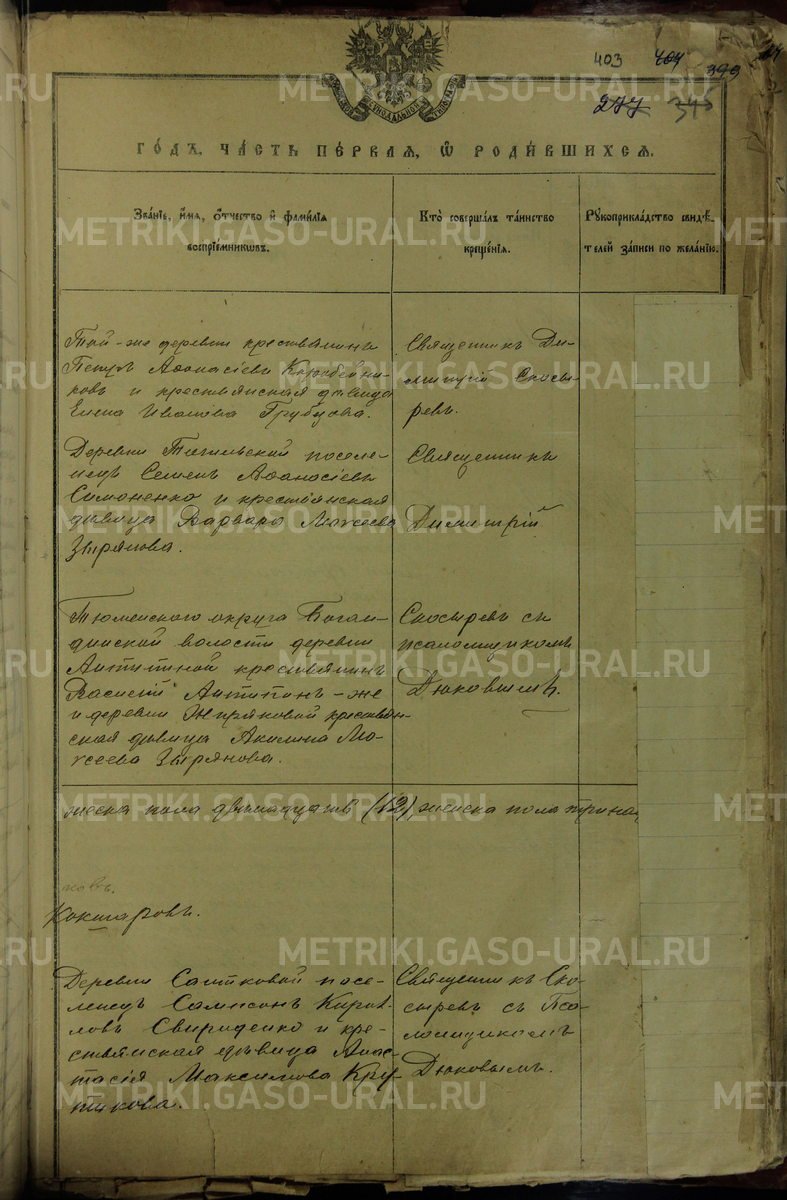 403 404 399
277 345
ГОДЪ, ЧАСТЬ ПЕРВАЯ, Ѿ РОДИВШИХСЯ.
Званіе, имя, отчество и фамилія
воспріемниковъ.
Кто совершалъ таинство
крещенія.
Рукоприкладство свидѣ-
телей записи по желанію.
Той-же деревни крестьянинъ
Петръ Аѳанасіевъ Коробейни-
ковъ и крестьянская дѣвица
Елена Иванова Грубцова.
Священникъ Ди-
митрій Скосы-
ревъ.
Деревни Тигильской поселе-
нецъ Семенъ Аѳанасіевъ
Симоненко и крестьянская
дѣвица Варвара Моисеева
Зырянова.
Священникъ
Димитрій
Тюменскаго округа Боган-
динской волости деревни
Антипиной крестьянинъ
Василій Антипинъ-же
и деревни Жиряковой крестьян-
ская дѣвица Акилина Мо-
исеева Зырянова.
Скосыревъ съ
псаломщикомъ
Дюковымъ.
мужеска пола двѣнадцать (12), женска пола трина
Кокшаровъ.
Деревни Саитковой посе-
ленецъ Сампсонъ Кирил-
ловъ Свириденко и кре-
стьянская дѣвица Анас-
тасія Максимова Кру-
тикова.
Священникъ Ско-
сыревъ съ Пса-
ломщикомъ
Дюковымъ.
METRIKI.GASO-URAL.RU